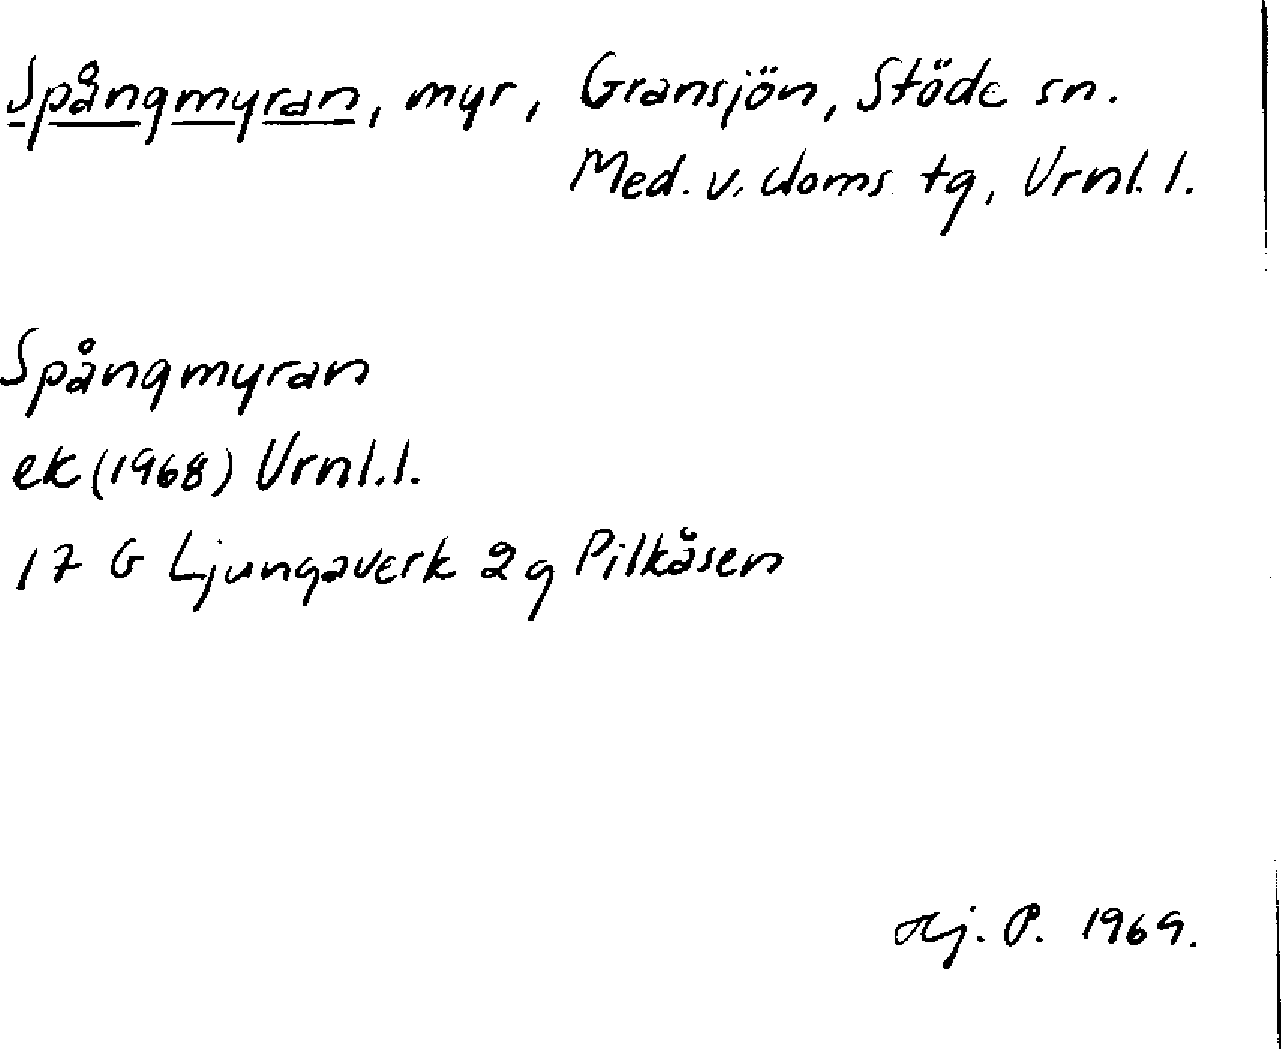 Spångmyran, myr, Gransjön, Stöde sn.
Med. v. doms tg, Vrnl. l.
Spångmyran
ek (1968) Vrnl. l.
17 G Ljungaverk 2g Pilkåsen
Hj. P. 1969.